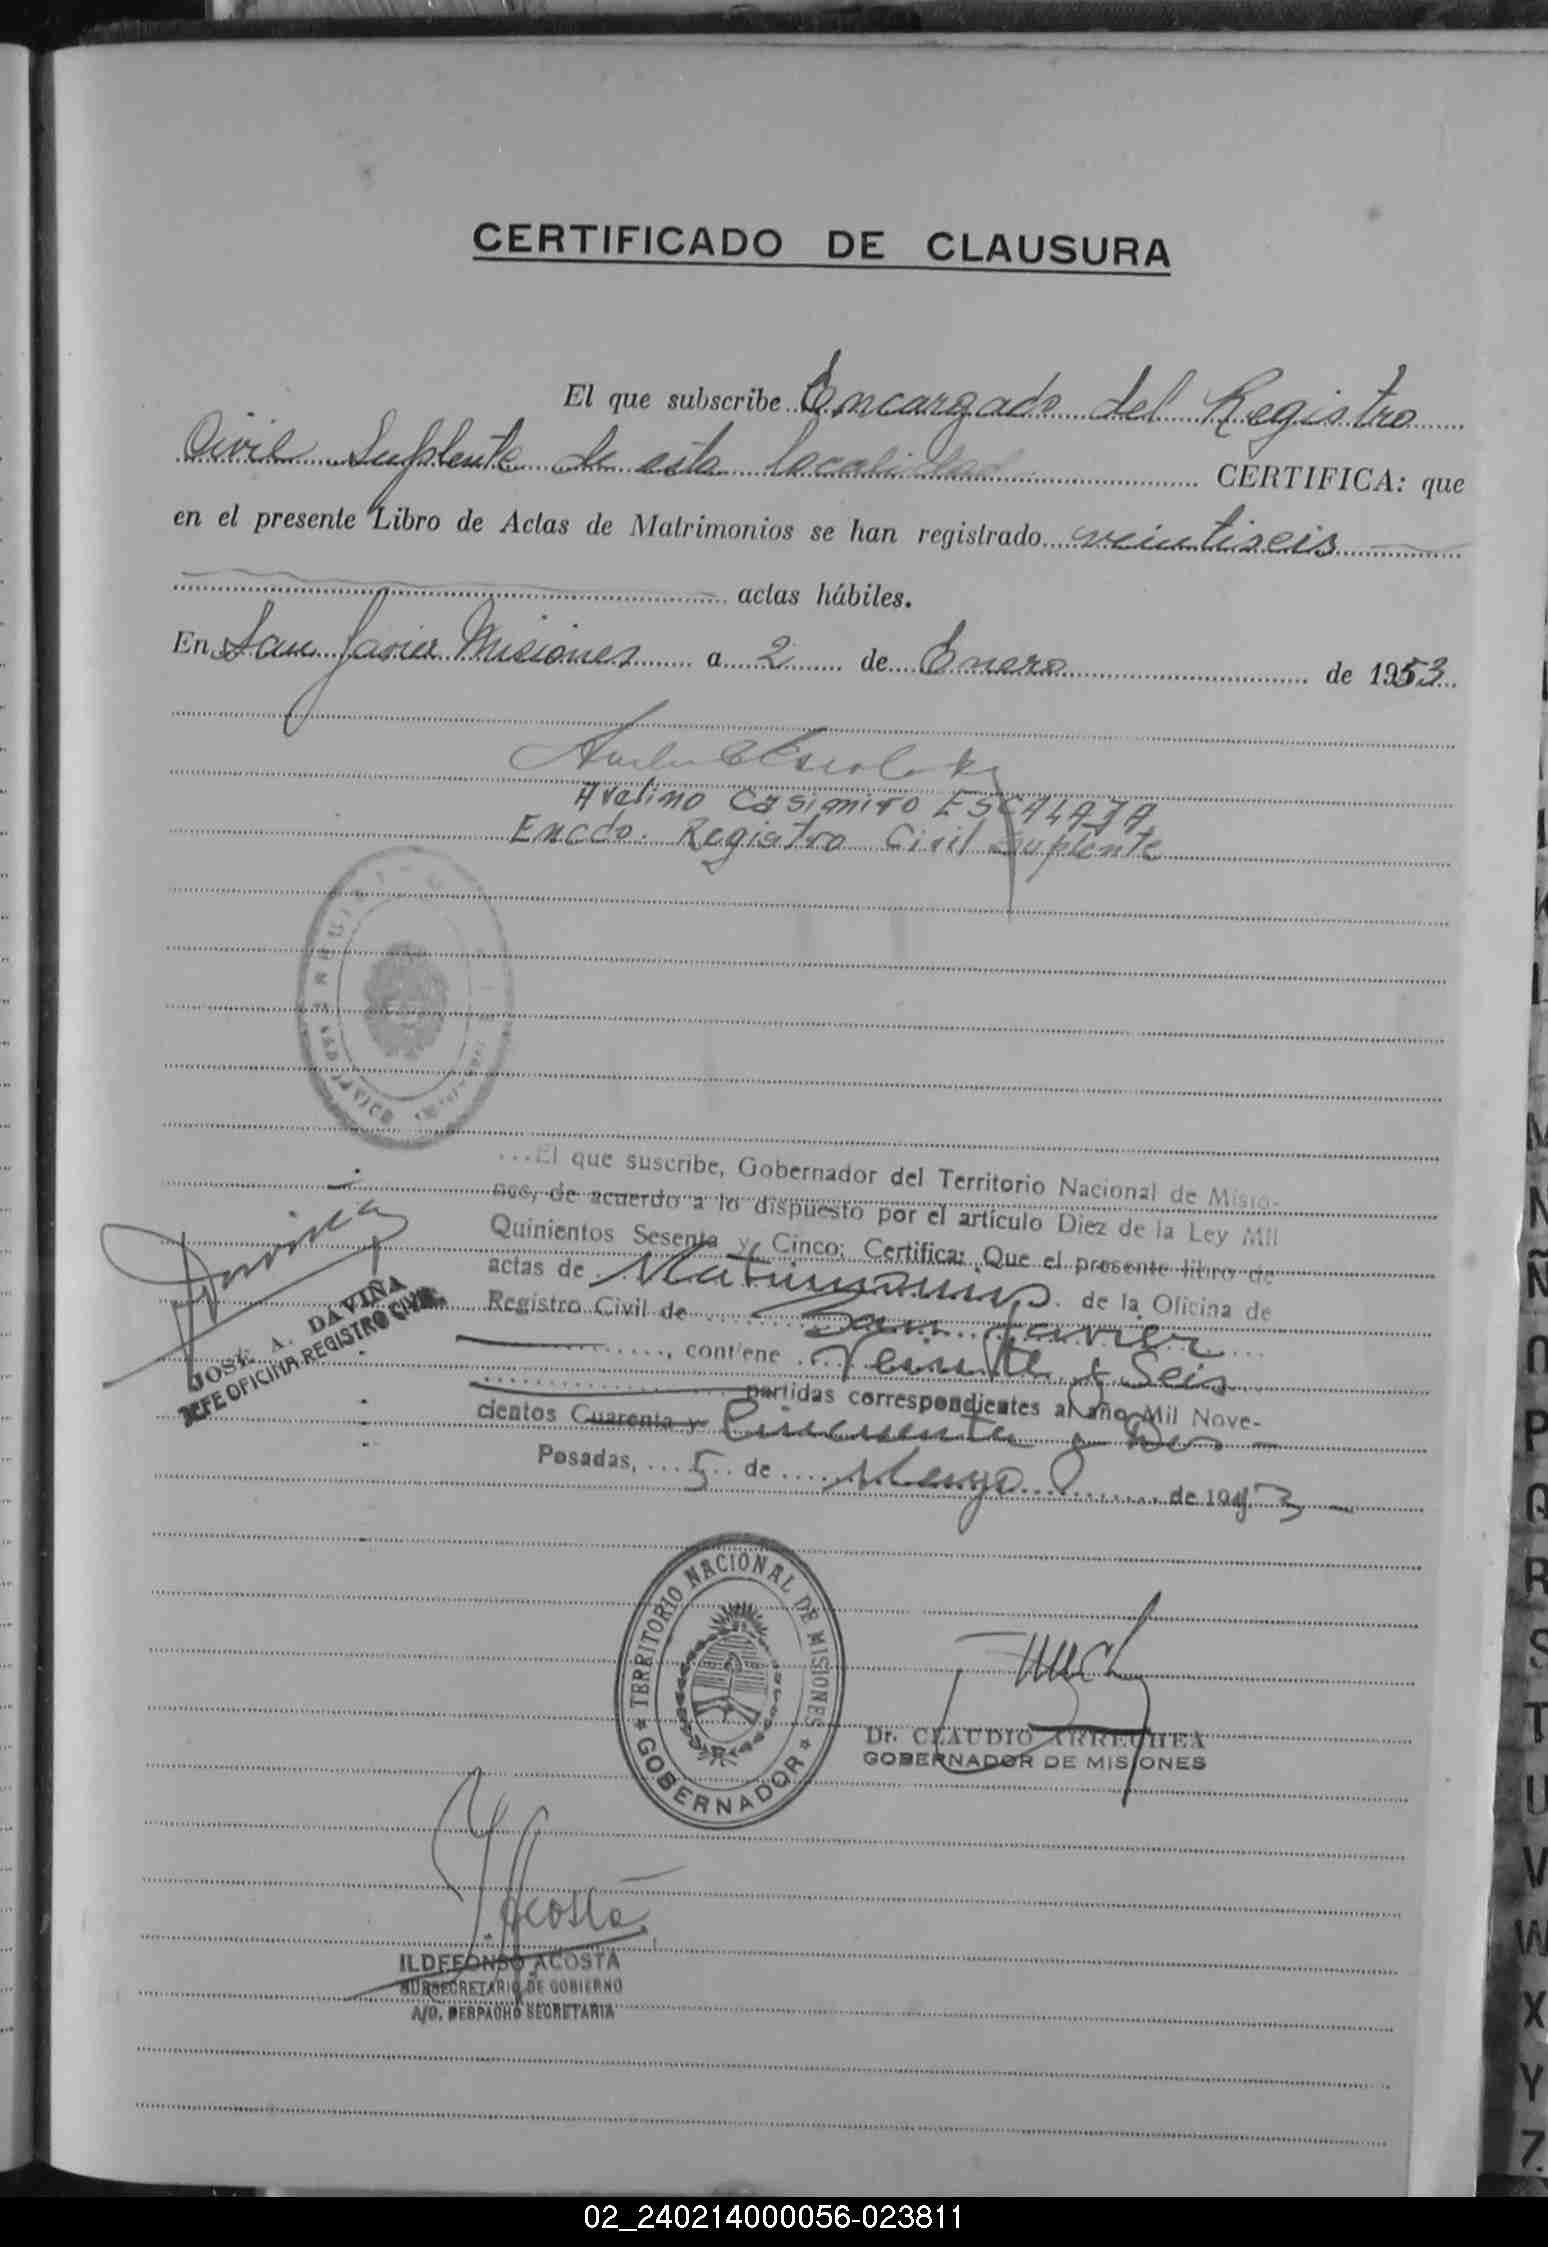 CERTIFICADO DE CLAUSURA
El que subscribe Encargado del Registro
Civil Suplente de esta localidad CERTIFICA: que
en el presente Libro de Actas de Matrimonios se han registrado veintiseis
actas hábiles.
En San Javier Misiones a 2 de Enero de 1953
Avelino Casimiro ESCALADA
Encdo. Registro Civil Suplente
...El que suscribe, Gobernador del Territorio Nacional de Misio-
nes, de acuerdo a lo dispuesto por el artículo Diez de la Ley Mil
Quinientos Sesenta y Cinco; Certifica: Que el presente libro de
actas de Matrimonios de la Oficina de
Registro Civil de San Javier
contiene Veinte y Seis
partidas correspondientes al año Mil Nove-
cientos Cuarenta y Cincuenta y Dos
Posadas, 5 de Mayo de 1943
Daviña
JOSE A. DAVIÑA
JEFE OFICINA REGISTRO CIVIL
TERRITORIO NACIONAL DE MISIONES
GOBERNADOR
Dr. CLAUDIO ARRECHEA
GOBERNADOR DE MISIONES
Acosta
ILDEFONSO ACOSTA
SUBSECRETARIO DE GOBIERNO
A/C. DESPACHO SECRETARIA
K
L
M
N
Ñ
O
P
Q
R
S
T
U
V
W
X
Y
Z
02_240214000056-023811